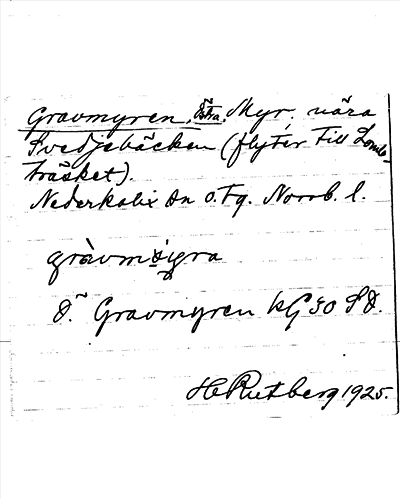 Gravmyren, Östra. Myr. nära
Svedjebäcken (flyter till Lomb-
träsket).
Nederkalix sn o. tg. Norrb. l.
gràvmýra
Ö. Gravmyren kG 50 SO.
H Rutberg 1925.